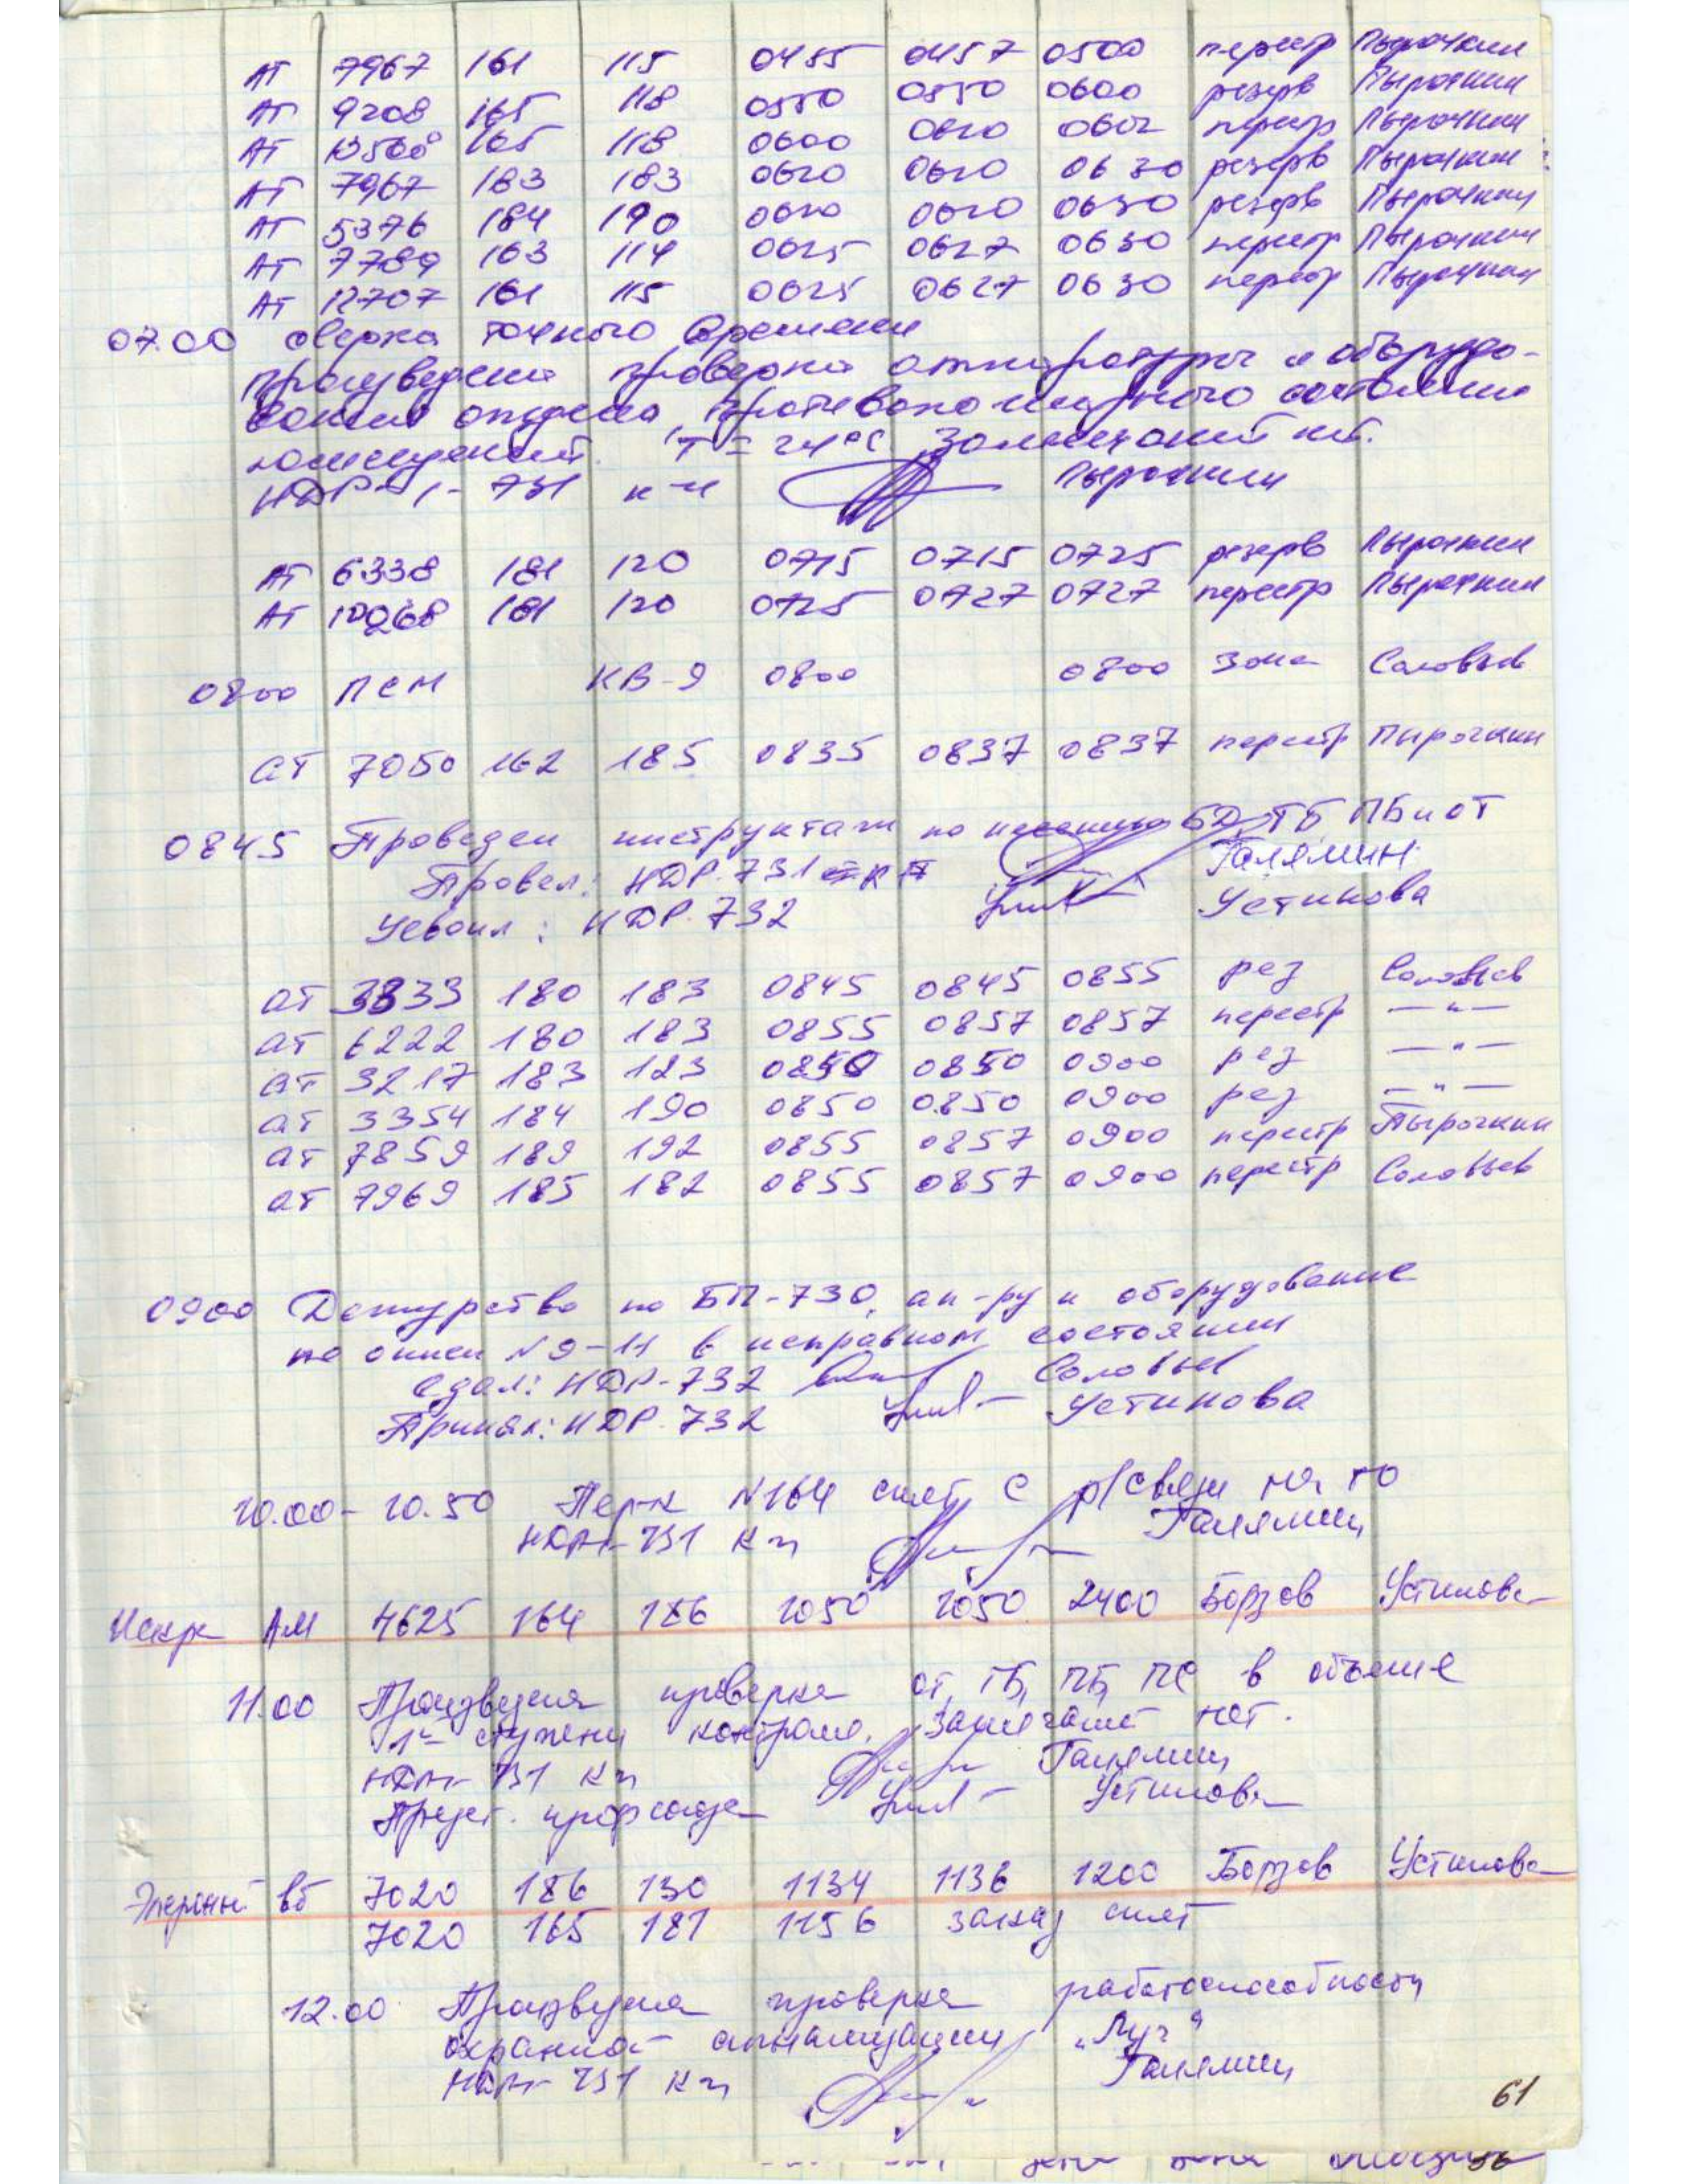 АТ 7967 161 115 0455 0457 0500 перестр Пырочкин
АТ 9208 165 118 0550 0550 0600 резерв Пырочкин
АТ 165 118 0600 0602 перестр Пырочкин
АТ 7967 183 183 0620 0620 0630 резерв Пырочкин
АТ 5376 184 190 0620 0620 0630 резерв Пырочкин
АТ 7789 163 114 0625 0627 0630 перестр Пырочкин
АТ 12707 161 115 0625 0627 0630 перестр Пырочкин
07.00 сверка точного времени
произведена проверка аппаратуры и оборудо-
вания отдела, противопожарного состояния
помещений. Т = 24°С Замечаний нет.
НДР-1- 731 к-н Пырочкин
АТ 6338 181 120 0715 0715 0725 резерв Пырочкин
АТ 181 120 0725 0727 0727 перестр Пырочкин
0800 ПСМ КВ-9 0800 0800 Зона Соловьев
АТ 7050 162 185 0835 0837 0837 перестр Пырочкин
0845 Проведен инструктаж по несению БД, ТБ ПБ и ОТ
Провел: НДР-731 Галямин
Усвоил: НДР-732 Устинова
АТ 3839 180 183 0845 0845 0855 рез Соловьев
АТ 6222 180 183 0855 0857 0857 перестр —"—
АТ 3217 183 123 0850 0850 0900 рез —"—
АТ 3354 184 190 0850 0850 0900 рез —"—
АТ 7859 189 192 0855 0857 0900 перестр Пырочкин
АТ 7969 185 182 0855 0857 0900 перестр Соловьев
0900 Дежурство по БП-730, ап-ру и оборудование
по описи N9-11 в исправном состоянии
Сдал: НДР-732 Соловьев
Принял: НДР-732 Устинова
10.00 - 10.50 Пер-к N164 снят с р/связи на ТО
731 к-н Галямин
Искра АМ 4625 164 186 1050 1050 2400 Борзов Устинова
11.00 Произведена проверка ОТ, ТБ, ПБ, ПС в объеме
1й ступени контроля. Замечаний нет.
731 к-н Галямин
Предст. профсоюза Устинова
вб 7020 186 130 1134 1136 1200 Борзов Устинова
7020 165 187 1156 заказ снят
12.00 Произведена проверка работоспособности
охранной сигнализации „Луч"
731 к-н Галямин
61